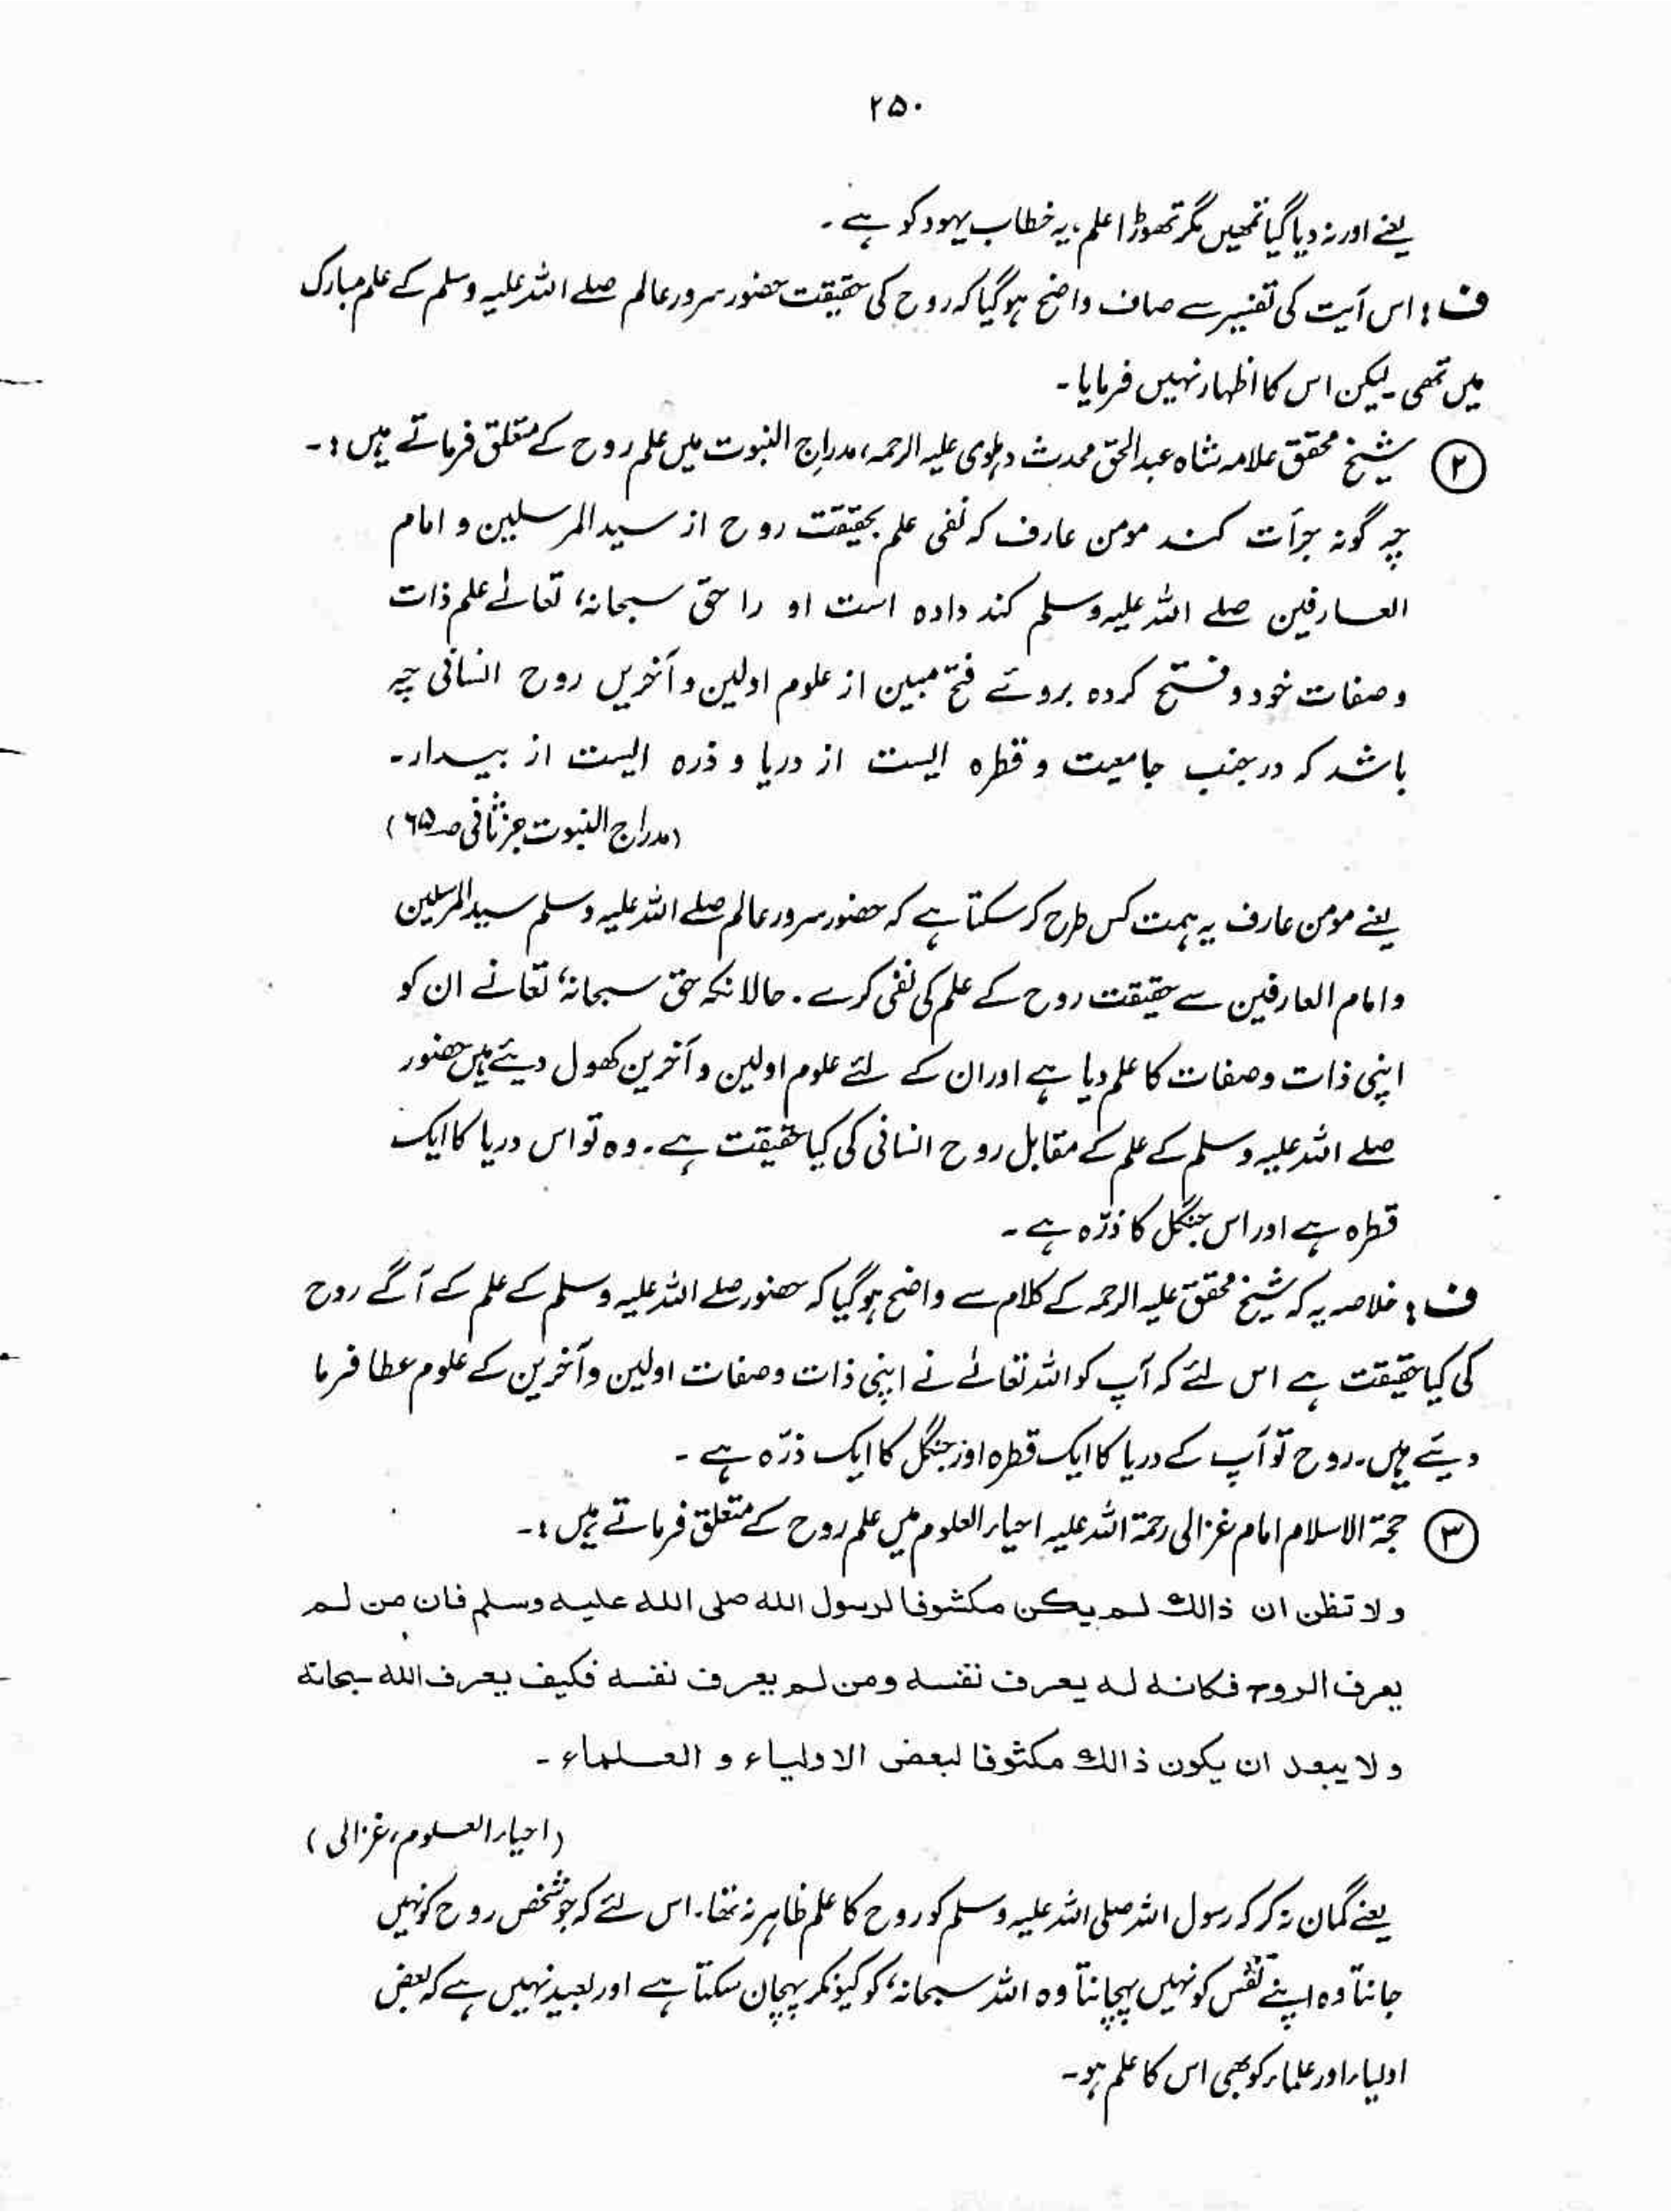 ۲۵۰
یعنے اور نہ دیا گیا تمھیں مگر تھوڑا علم، یہ خطاب یہود کو ہے۔
ف : اس آیت کی تفسیر سے صاف واضح ہوگیا کہ روح کی حقیقت حضور سرور عالم صلے اللہ علیہ وسلم کے علم مبارک
میں تھی۔ لیکن اس کا اظہار نہیں فرمایا۔
۲ شیخ محقق علامہ شاہ عبدالحق محدث دہلوی علیہ الرحمہ، مدارج النبوت میں علم روح کے متعلق فرماتے ہیں :۔
چہ گونہ جرأت کند مومن عارف کہ نفی علم بحقیقت روح از سید المرسلین و امام
العارفین صلے اللہ علیہ وسلم کند دادہ است او را حق سبحانہ، تعالےٰ علم ذات
و صفات خود و فتح کردہ بروئے فتح مبین از علوم اولین و آخریں روح انسانی چہ
باشد کہ در بجنب جامعیت و قطرہ الیست از دریا و ذرہ الیست از بیدار۔
(مدراج النبوت جز ثانی صـ ۶۵)
یعنے مومن عارف یہ ہمت کس طرح کر سکتا ہے کہ حضور سرور عالم صلے اللہ علیہ وسلم سید المرسلین
و امام العارفین سے حقیقت روح کے علم کی نفی کرے۔ حالانکہ حق سبحانہ، تعانے ان کو
اپنی ذات و صفات کا علم دیا ہے اور ان کے لئے علوم اولین و آخرین کھول دیئے ہیں حضور
صلے اللہ علیہ وسلم کے علم کے مقابل روح انسانی کی کیا حقیقت ہے۔ وہ تو اس دریا کا ایک
قطرہ ہے اور اس جنگل کا ذرّہ ہے۔
ف : خلاصہ یہ کہ شیخ محقق علیہ الرحمہ کے کلام سے واضح ہوگیا کہ حضور صلے اللہ علیہ وسلم کے علم کے آگے روح
کی کیا حقیقت ہے اس لئے کہ آپ کو اللہ تعالےٰ نے اپنی ذات و صفات اولین و آخرین کے علوم عطا فرما
دیئے ہیں۔ روح تو آپ کے دریا کا ایک قطرہ اور جنگل کا ایک ذرّہ ہے۔
۳ حجۃ الاسلام امام غزالی رحمۃ اللہ علیہ احیاء العلوم میں علم روح کے متعلق فرماتے ہیں :۔
ولا تظن ان ذالك لم يكن مكشوفا لرسول الله صلى الله عليه وسلم فان من لم
يعرف الروح فكانه له يعرف نفسه ومن لم يعرف نفسه فكيف يعرف الله سبحانه
ولا يبعد ان يكون ذالك مكثوفا لبعض الاولياء و العلماء۔
(احیاء العلوم، غزالی)
یعنے گمان نہ کر کہ رسول اللہ صلی اللہ علیہ وسلم کو روح کا علم ظاہر نہ تھا۔ اس لئے کہ جو شخص روح کو نہیں
جانتا وہ اپنے نفس کو نہیں پہچانتا وہ اللہ سبحانہ، کو کیونکر پہچان سکتا ہے اور بعید نہیں ہے کہ بعض
اولیاء اور علماء کو بھی اس کا علم ہو۔